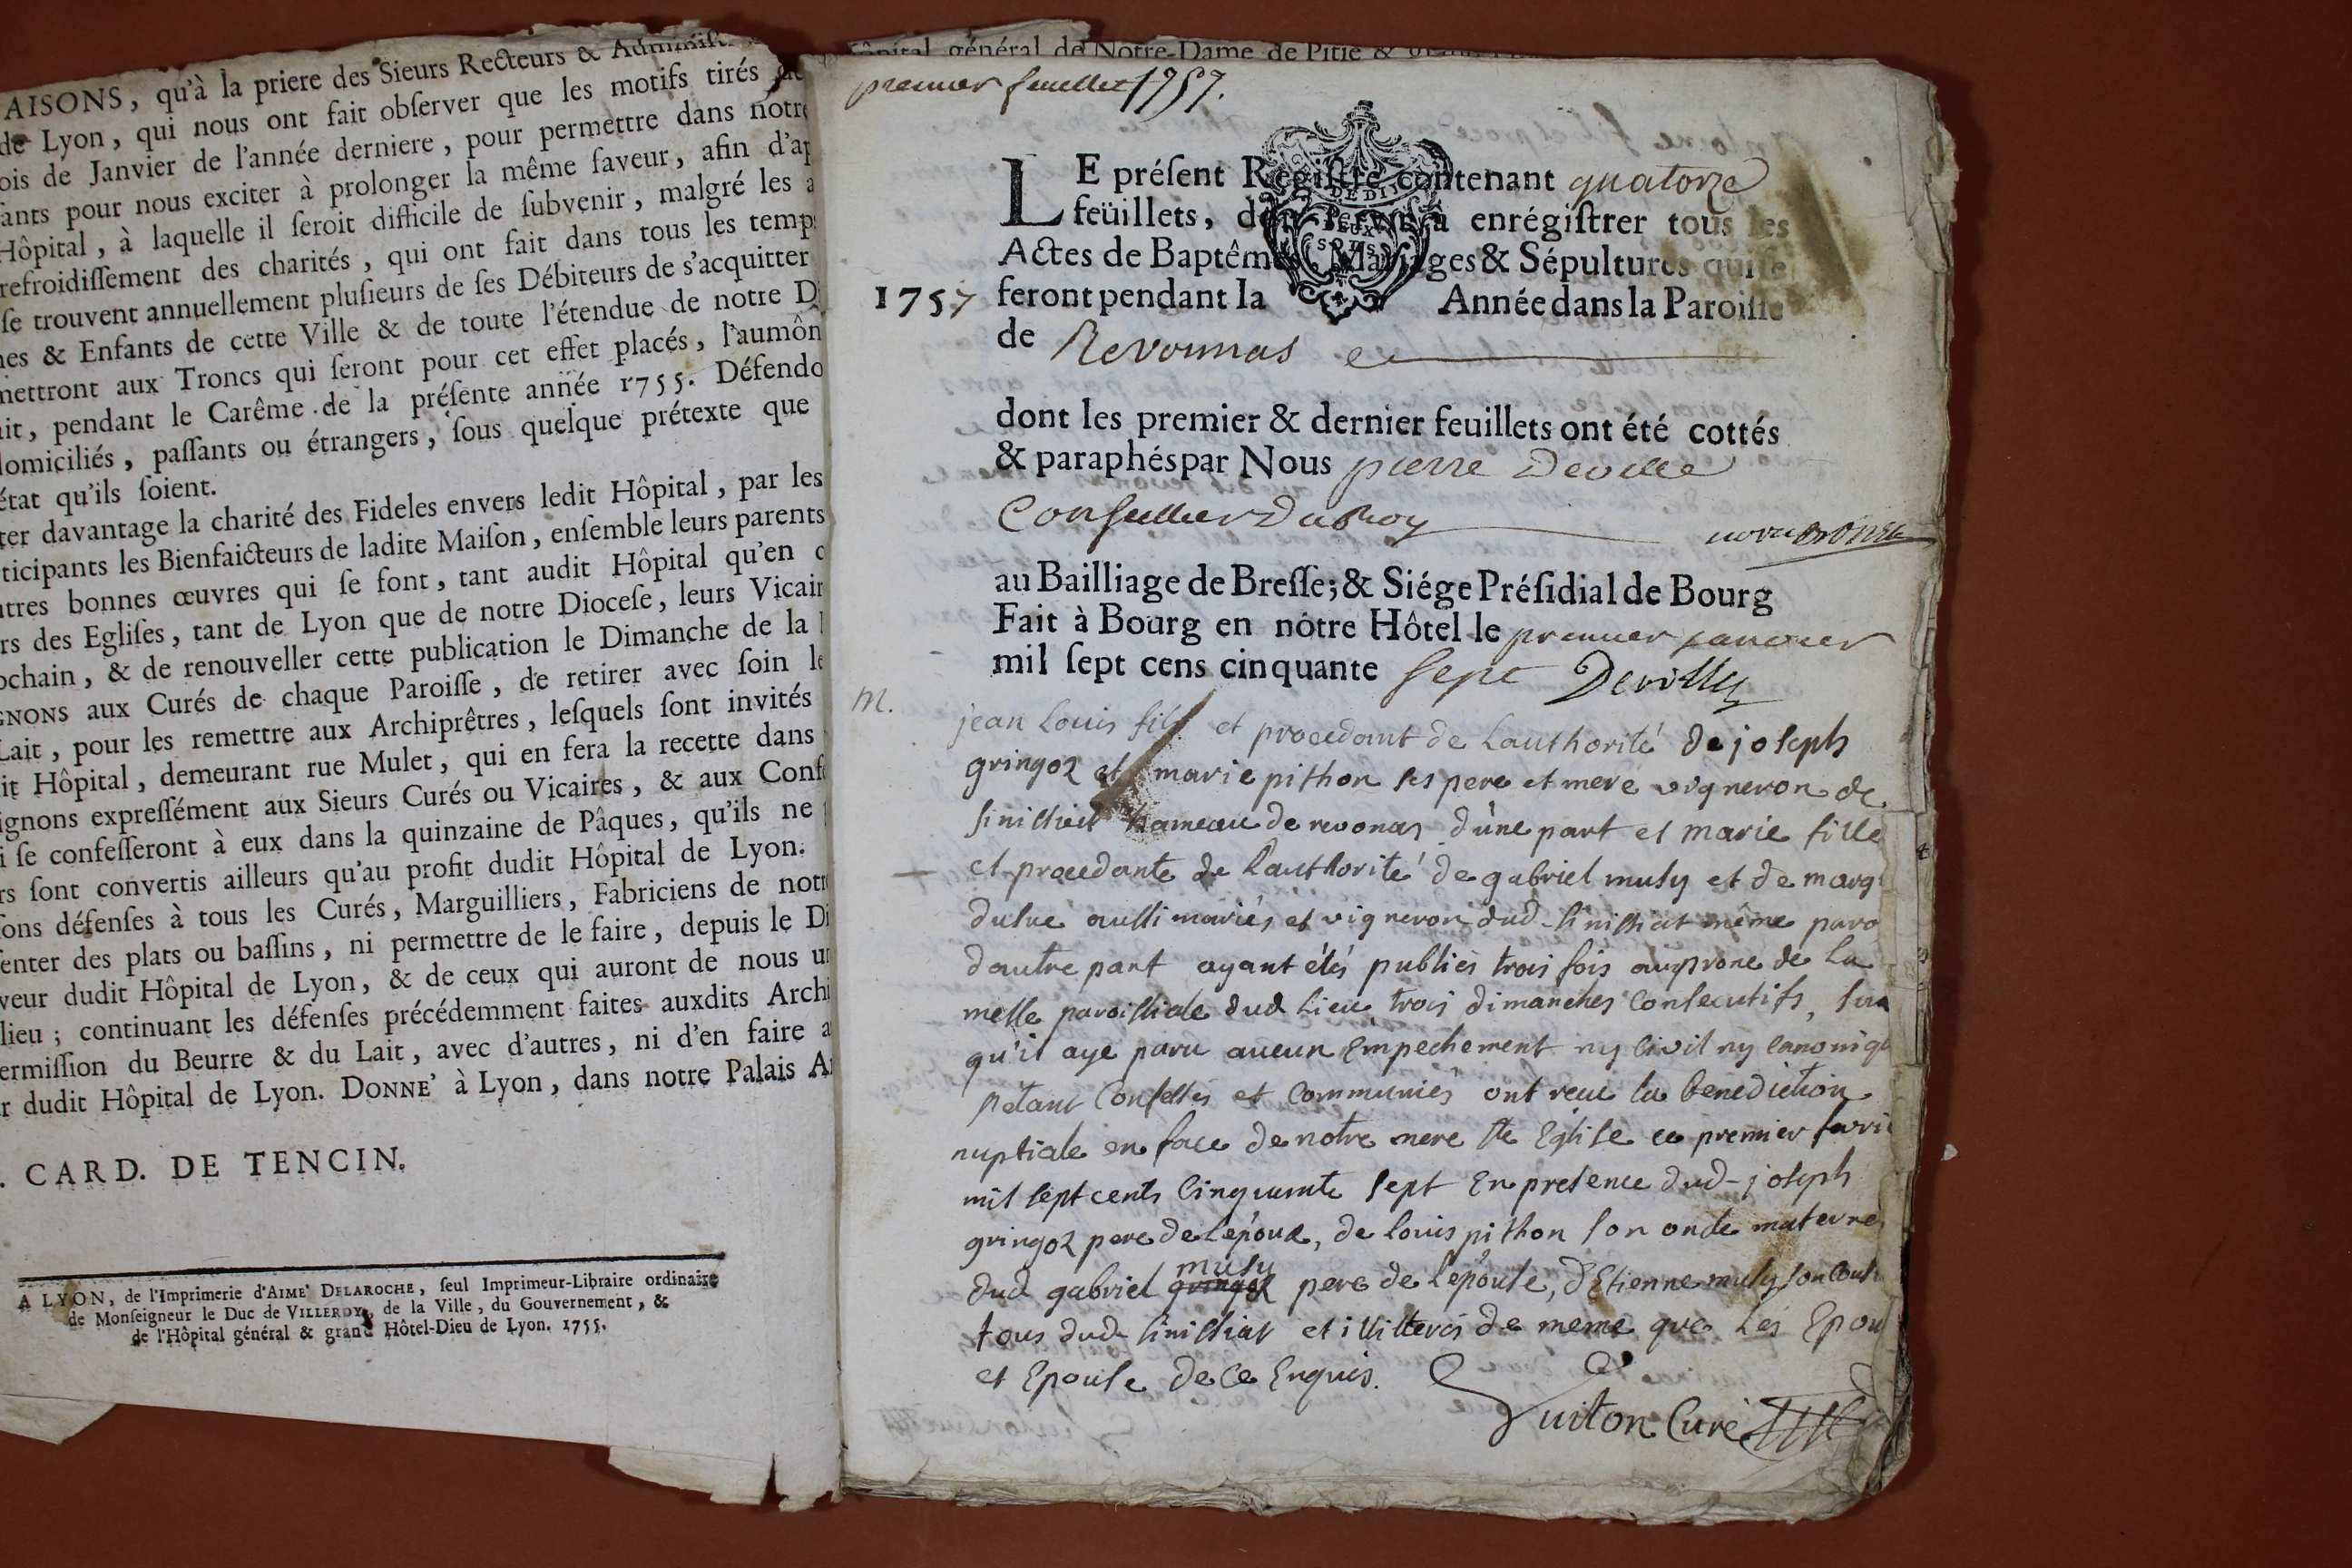 AISONS, qu'à la priere des Sieurs Recteurs &
de Lyon, qui nous ont fait obſerver que les motifs tirés
ois de Janvier de l'année derniere, pour permettre dans notre
ants pour nous exciter à prolonger la même faveur, afin d'ap
Hôpital, à laquelle il ſeroit difficile de ſubvenir, malgré les a
refroidiſſement des charités, qui ont fait dans tous les temps
ſe trouvent annuellement pluſieurs de ſes Débiteurs de s'acquitter
nes & Enfants de cette Ville & de toute l'étendue de notre D
mettront aux Troncs qui ſeront pour cet effet placés, l'aumôn
ait, pendant le Carême de la préſente année 1755. Défendo
domiciliés, paſſants ou étrangers, ſous quelque prétexte que
état qu'ils ſoient.
ter davantage la charité des Fideles envers ledit Hôpital, par les
ticipants les Bienfaicteurs de ladite Maiſon, enſemble leurs parents
utres bonnes œuvres qui ſe font, tant audit Hôpital qu'en c
rs des Egliſes, tant de Lyon que de notre Dioceſe, leurs Vicair
ochain, & de renouveller cette publication le Dimanche de la
GNONS aux Curés de chaque Paroiſſe, de retirer avec ſoin le
Lait, pour les remettre aux Archiprêtres, leſquels ſont invités
it Hôpital, demeurant rue Mulet, qui en fera la recette dans
ignons expreſſément aux Sieurs Curés ou Vicaires, & aux Conf
i ſe confeſſeront à eux dans la quinzaine de Pâques, qu'ils ne
rs ſont convertis ailleurs qu'au profit dudit Hôpital de Lyon.
ſons défenſes à tous les Curés, Marguilliers, Fabriciens de notr
ſenter des plats ou baſſins, ni permettre de le faire, depuis le Di
veur dudit Hôpital de Lyon, & de ceux qui auront de nous u
lieu; continuant les défenſes précédemment faites auxdits Archi
ermiſſion du Beurre & du Lait, avec d'autres, ni d'en faire a
r dudit Hôpital de Lyon. DONNE' à Lyon, dans notre Palais A
. CARD. DE TENCIN.
A LYON, de l'Imprimerie d'AIME' DELAROCHE, ſeul Imprimeur-Libraire ordinaire
de Monſeigneur le Duc de VILLEROY, de la Ville, du Gouvernement, &
de l'Hôpital général & grand Hôtel-Dieu de Lyon. 1755.
ôpital général de Notre-Dame de Pitié &
premier feuillet 1757.
LE préſent Regiſtre contenant quatorze
feüillets, doit ſervir à enrégiſtrer tous les
Actes de Baptêmes Mariages & Sépultures qui ſe
1757 feront pendant la Année dans la Paroiſſe
de Revonnas
dont les premier & dernier feuillets ont été cottés
& paraphés par Nous pierre Deville
Conseiller Du Roy
au Bailliage de Breſſe; & Siége Préſidial de Bourg
Fait à Bourg en nôtre Hôtel le premier janvier
mil ſept cens cinquante sept Deville
M. jean Louis fils et procedant de Lauthorité de joseph
gringoz et marie pithon ses pere et mere vigneron de
sinissiat hameau de revonas d'une part et marie fille
et procedante de Lauthorité de gabriel musy et de marg
aussi mariés et vigneron dud. sinissiat même paro
dautre part ayant étés publiés trois fois au prone de La
messe paroissiale dud Lieu trois dimanches Consecutifs,
qu'il aye paru aucun Empechement ny Civil ny Canoniq
sétant Confessés et Communiés ont receu la benediction
nuptiale en face de notre mere Ste Eglise ce premier
mil sept cents Cinquante sept En presence dud joseph
gringoz pere de L'epoux, de louis pithon son oncle materne
dud gabriel gringoz musy pere de L'epouse, d'Etienne musy son Cous
tous dud sinissiat et illiterés de meme que Les Epou
et Epouse de Ce Enquis.
Guiton Curé